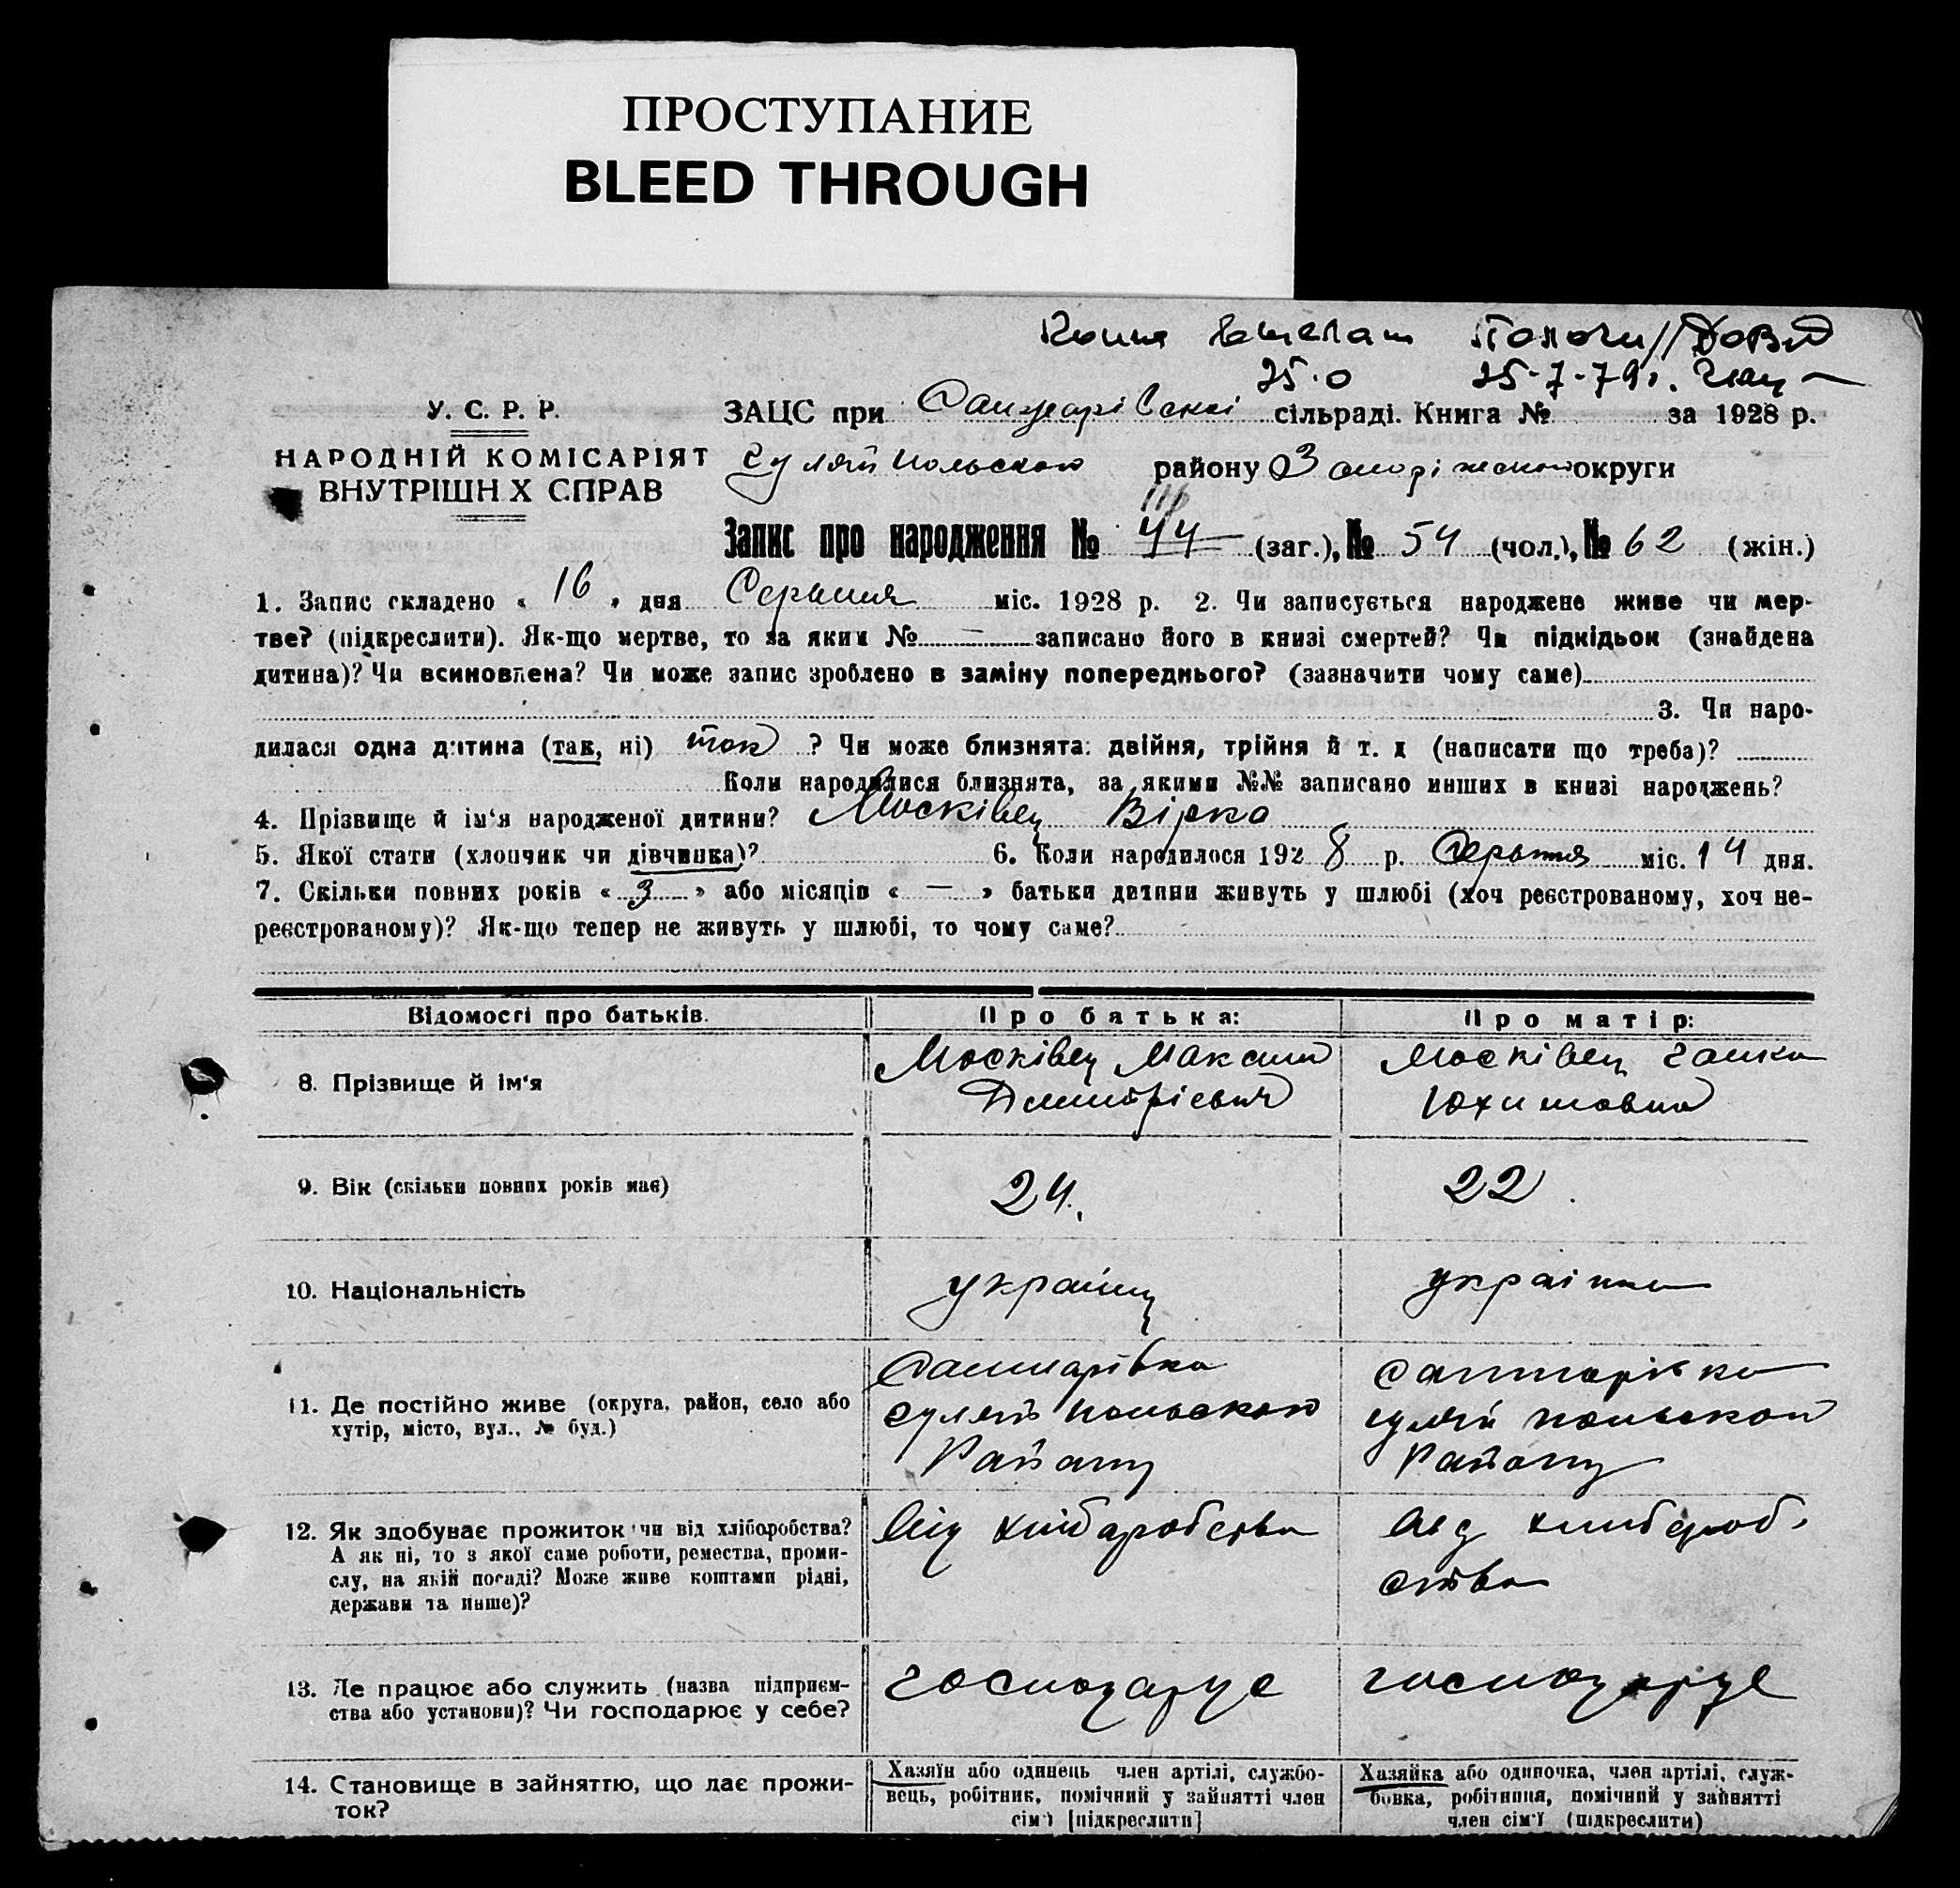 ПРОСТУПАНИЕ
BLEED THROUGH
25-7-79г.
У. С. Р. Р.
НАРОДНІЙ КОМІСАРІЯТ
ВНУТРІШН Х СПРАВ
ЗАЦС при Санжарівскі сільраді. Книга № за 1928 р.
Гуляй Польского району Запоріжского округи
Запис про народження № 44 116 (заг.), № 54 (чол.), № 62 (жін.)
1. Запис складено « 16 » дня Серпня міс. 1928 р. 2. Чи записується народжене живе чи мер-
тве? (підкреслити). Як-що мертве, то за яким № — записано його в книзі смертей? Чи підкідьок (знайдена
дитина)? Чи всиновлена? Чи може запис зроблено в заміну попереднього? (зазначити чому саме)
3. Чи наро-
дилася одна дитина (так, ні) так ? Чи може близнята: двійня, трійня й т. д (написати що треба)?
Коли народилися близнята, за якими №№ записано инших в книзі народжень?
4. Прізвище й ім'я народженої дитини? Москівец Вірка
5. Якої стати (хлопчик чи дівчинка)? 6. Коли народилося 1928 р. Серпня міс. 14 дня.
7. Скільки повних років « 3 » або місяців « — » батьки дитини живуть у шлюбі (хоч реєстрованому, хоч не-
реєстрованому)? Як-що тепер не живуть у шлюбі, то чому саме?
Відомості про батьків.
Про батька:
Про матір:
8. Прізвище й ім'я
Москівец Максим
Дмитрієвич
Москівец Ганка
Юхимовна
9. Вік (скільки повних років має)
24.
22.
10. Національність
українц
українка
11. Де постійно живе (округа, район, село або
хутір, місто, вул., № буд.)
Санжарівка
Гуляй Польского
Району
Санжарівка
Гуляй Польского
Району
12. Як здобуває прожиток чи від хліборобства?
А як ні, то з якої саме роботи, ремества, проми-
слу, на якій посаді? Може живе коштами рідні,
держави та инше)?
Від хліборобства
Від хлібороб-
ства
13. Де працює або служить (назва підприєм-
ства або установи)? Чи господарює у себе?
господарує
господарує
14. Становище в зайняттю, що дає прожи-
ток?
Хазяїн або одинець член артілі, службо-
вець, робітник, помічний у зайнятті член
сім'ї [підкреслити]
Хазяйка або одиночка, член артілі, служ-
бовка, робітниця, помічний у зайнятті
член сім'ї (підкреслити)